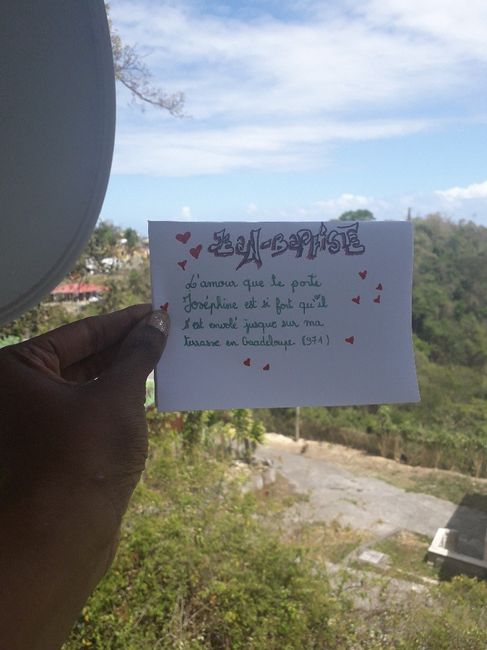 JEAN-BAPTISTE
L'amour que te porte
Joséphine est si fort qu'il
s'est envolé jusque sur ma
terrasse en Guadeloupe (971)